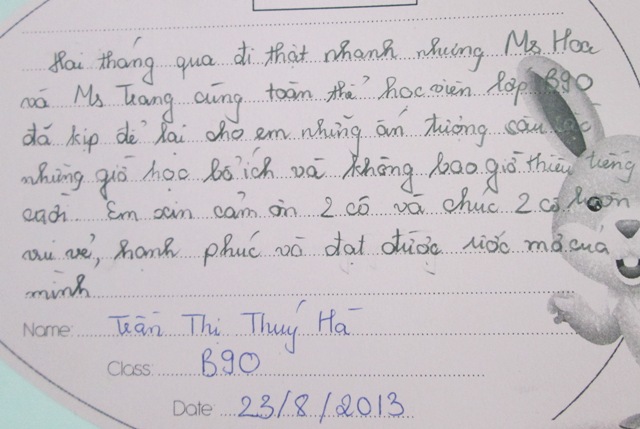 Hai tháng qua đi thật nhanh nhưng Ms Hoa
và Ms Trang cùng toàn thể học viên lớp B90
đã kịp để lại cho em những ấn tượng sâu sắc
những giờ học bổ ích và không bao giờ thiếu tiếng
cười. Em xin cảm ơn 2 cô và chúc 2 cô luôn
vui vẻ, hạnh phúc và đạt được ước mơ của
mình
Name: Trần Thị Thuý Hà
Class: B90
Date 23/8/2013